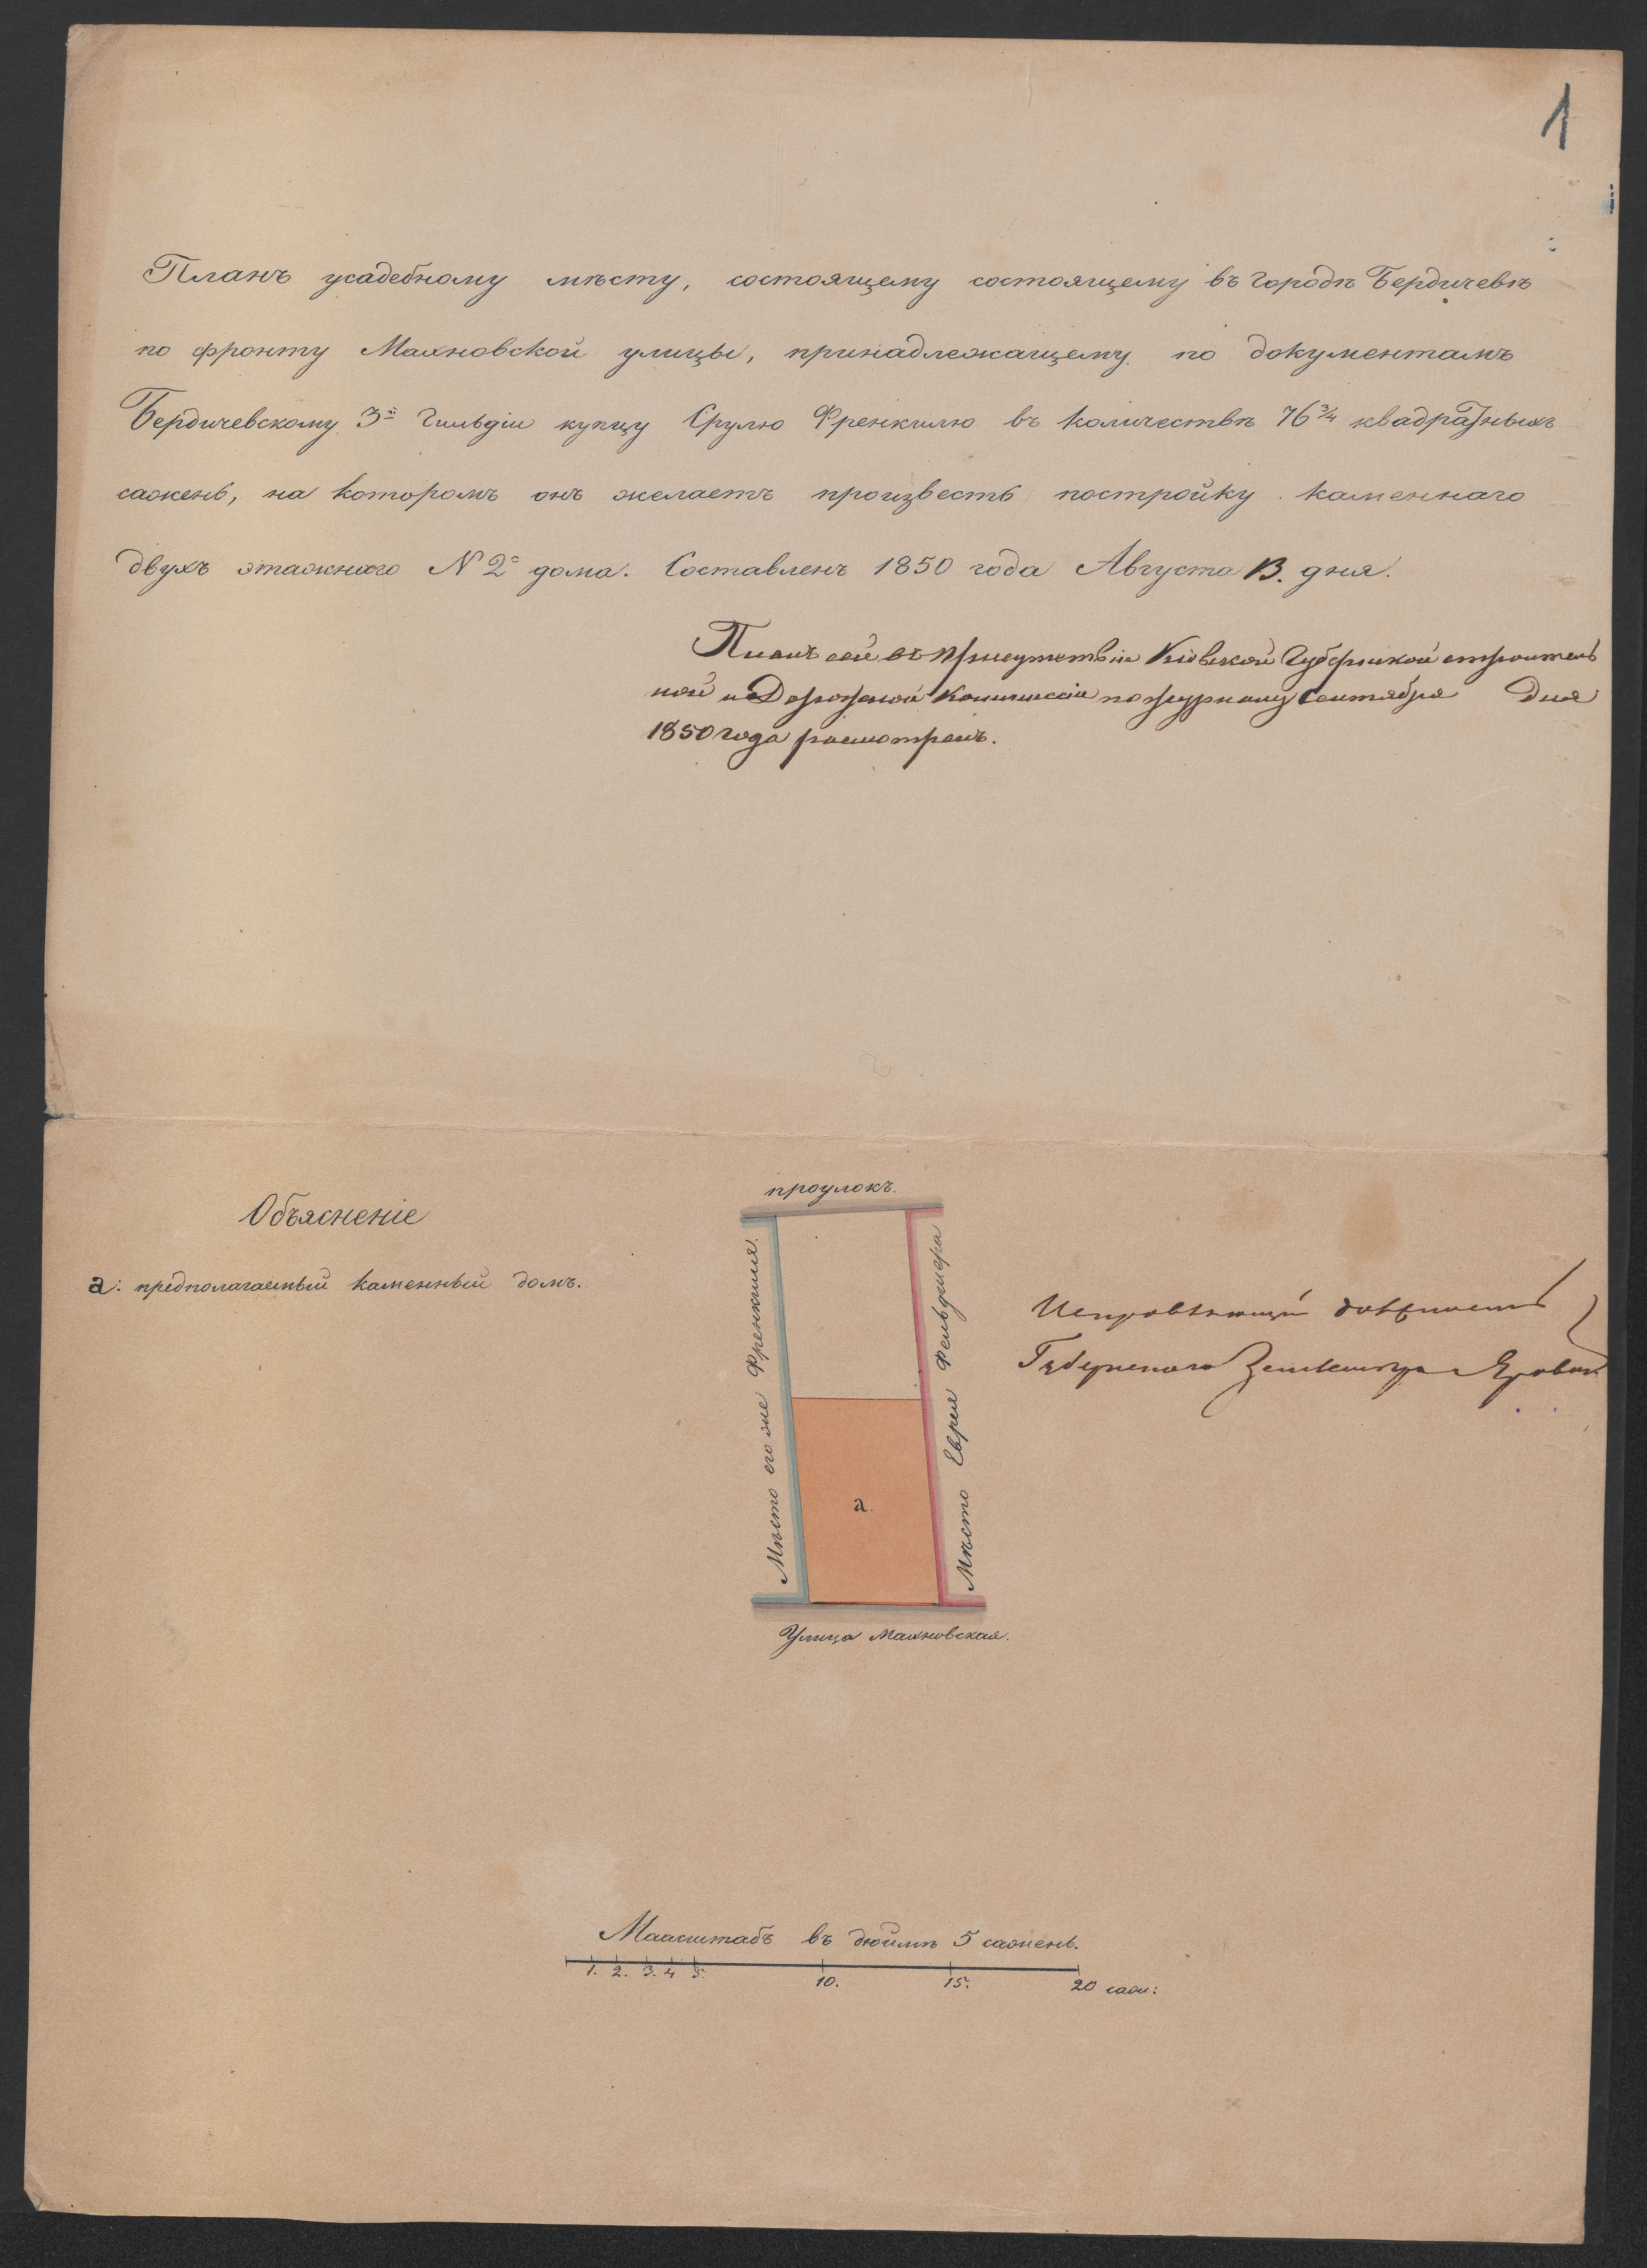 1
Планъ усадебному мѣсту, состоящему состоящему въ городѣ Бердичевѣ
по фронту Махновской улицы, принадлежащему по документамъ
Бердичевскому 3й гильдіи купцу Срулю Френкилю въ количествѣ 76 3/4 квадратныхъ
сажень, на которомъ онъ желаетъ произвесть постройку каменнаго
двухъ этажнаго N 2о дома. Составленъ 1850 года Августа 13. дня.
Планъ сей въ присутствіи Кіевской Губернской строитель
ной и Дорожной Коммиссіи по журналу Сентября дня
1850 года расмотренъ.
проулокъ.
Объясненіе
а: предполагаемый каменный домъ.
Мѣсто его же Френкиля.
Мѣсто Еврея Фельдшера
а.
Исправляющій должность
Губернскаго Землемѣра
Улица Махновская.
Маасштабъ въ дюймѣ 5 сажень.
1. 2. 3. 4 5 10. 15. 20 саж: